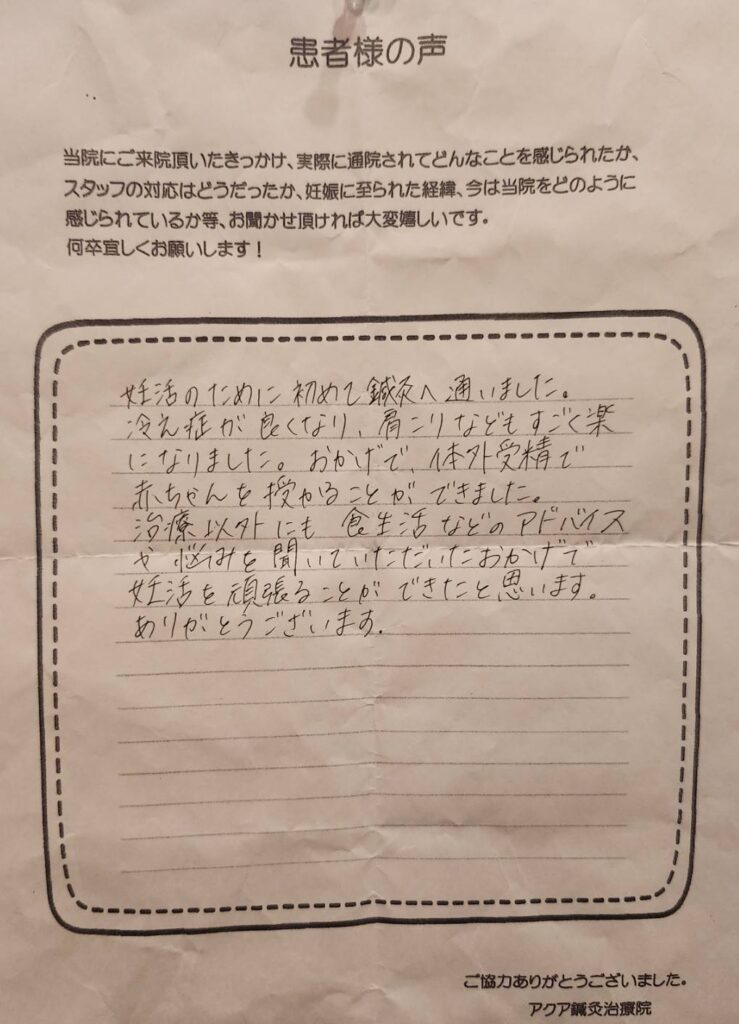 患者様の声
当院にご来院頂いたきっかけ、実際に通院されてどんなことを感じられたか、
スタッフの対応はどうだったか、妊娠に至られた経緯、今は当院をどのように
感じられているか等、お聞かせ頂ければ大変嬉しいです。
何卒宜しくお願いします！
妊活のために初めて鍼灸へ通いました。
冷え症が良くなり、肩こりなどもすごく楽
になりました。おかげで、体外受精で
赤ちゃんを授かることができました。
治療以外にも食生活などのアドバイス
や悩みを聞いていただいたおかげで
妊活を頑張ることができたと思います。
ありがとうございます。
ご協力ありがとうございました。
アクア鍼灸治療院